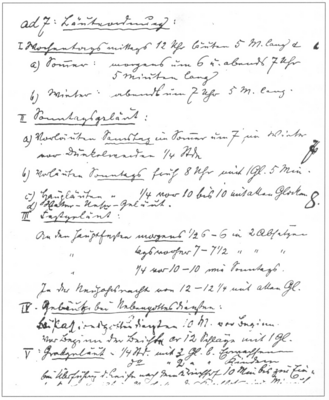 ad 7: Läuteordnung:
I. Wochentags mittags 12 Uhr läuten 5 M. lang
a) Sommer: morgens um 6 u. abends 7 Uhr
5 Minuten lang
b) Winter: abends um 7 Uhr 5 M. lang.
II Sonntagsgeläut:
a) Vorläuten Samstag im Sommer um 7 im Winter
vor Dunkelwerden 1/4 Stde
b) Vorläuten Sonntags früh 8 Uhr mit 1 Gl. 5 Min.
c) Hauptläuten " 1/4 vor 10 bis 10 mit allen Glocken
d)
8.
III Festgeläut:
An den Hauptfesten morgens 1/2 6-6 in 2 Absätzen
tags vorher 7-7 1/2 " " "
1/4 vor 10-10 wie Sonntags.
In der Neujahrsnacht von 12-12 1/4 mit allen Gl.
IV. Geläute bei Nebengottesdiensten:
10 M. vor Beginn.
Vor Beginn der Beichte 12 Schläge mit 1 Gl.
V: Grabgeläut: 1/4 Std. mit 3 Gl. b. Erwachsenen
2 " b. Kindern
10 Min bis zum